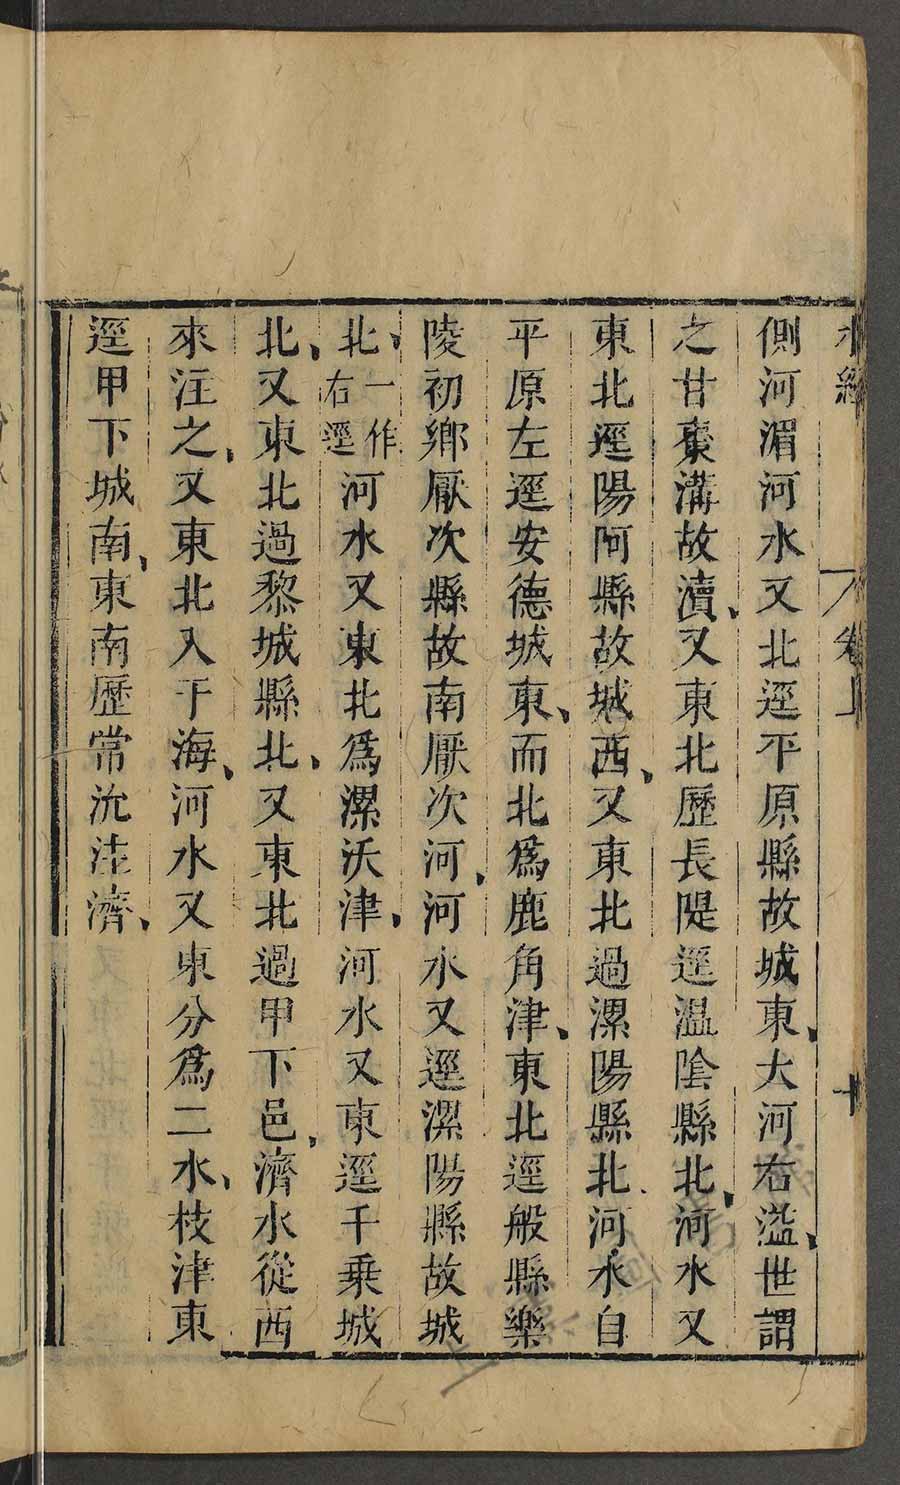 水經 卷上 十
側河湄河水又北逕平原縣故城東、大河右溢、世謂
之甘棗溝故瀆、又東北歷長隄逕温陰縣北、河水又
東北逕陽阿縣故城西、又東北過漯陽縣北、河水自
平原左逕安德城東、而北爲鹿角津、東北逕般縣樂
陵初鄉厭次縣故南厭次河、河水又逕漯陽縣故城
北、一作右逕河水又東北爲漯沃津、河水又東逕千乗城
北、又東北過黎城縣北、又東北過甲下邑、濟水從西
來注之、又東北入于海、河水又東分爲二水、枝津東
逕甲下城南、東南歷常沇注濟、